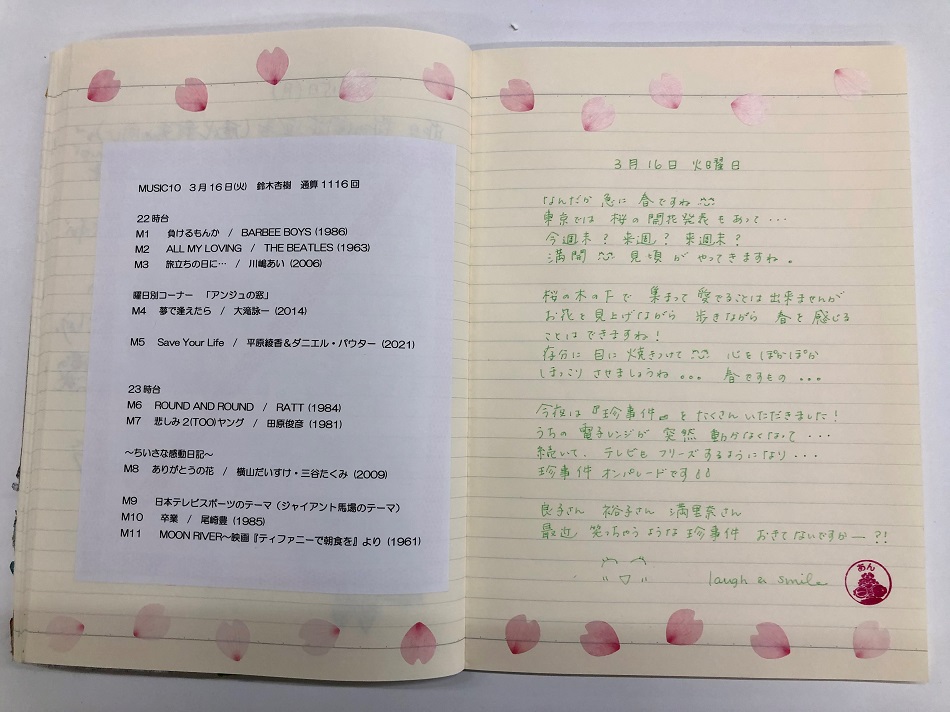 MUSIC10 3月16日(火) 鈴木杏樹 通算1116回
22時台
M1 負けるもんか / BARBEE BOYS (1986)
M2 ALL MY LOVING / THE BEATLES (1963)
M3 旅立ちの日に… / 川嶋あい (2006)
曜日別コーナー 「アンジュの窓」
M4 夢で逢えたら / 大滝詠一 (2014)
M5 Save Your Life / 平原綾香&ダニエル・パウター (2021)
23時台
M6 ROUND AND ROUND / RATT (1984)
M7 悲しみ2(TOO)ヤング / 田原俊彦 (1981)
～ちいさな感動日記～
M8 ありがとうの花 / 横山だいすけ・三谷たくみ (2009)
M9 日本テレビスポーツのテーマ(ジャイアント馬場のテーマ)
M10 卒業 / 尾崎豊 (1985)
M11 MOON RIVER～映画『ティファニーで朝食を』より (1961)
3月16日 火曜日
なんだか 急に 春ですね
東京では 桜の開花発表もあって・・・
今週末? 来週? 来週末?
満開 見頃が やってきますね。
桜の木の下で 集まって 愛でることは出来ませんが
お花を見上げながら 歩きながら 春を感じる
ことは できますね!
存分に 目に焼きつけて 心をぽかぽか
ほっこり させましょうね。。。 春ですもの・・・
今夜は『珍事件』を たくさんいただきました!
うちの 電子レンジが 突然 動かなくなって・・・
続いて、テレビも フリーズするようになり・・・
珍事件 オンパレードです
良子さん 裕子さん 満里奈さん
最近 笑っちゃう ような 珍事件 おきてないですかー?!
laugh & smile
あん